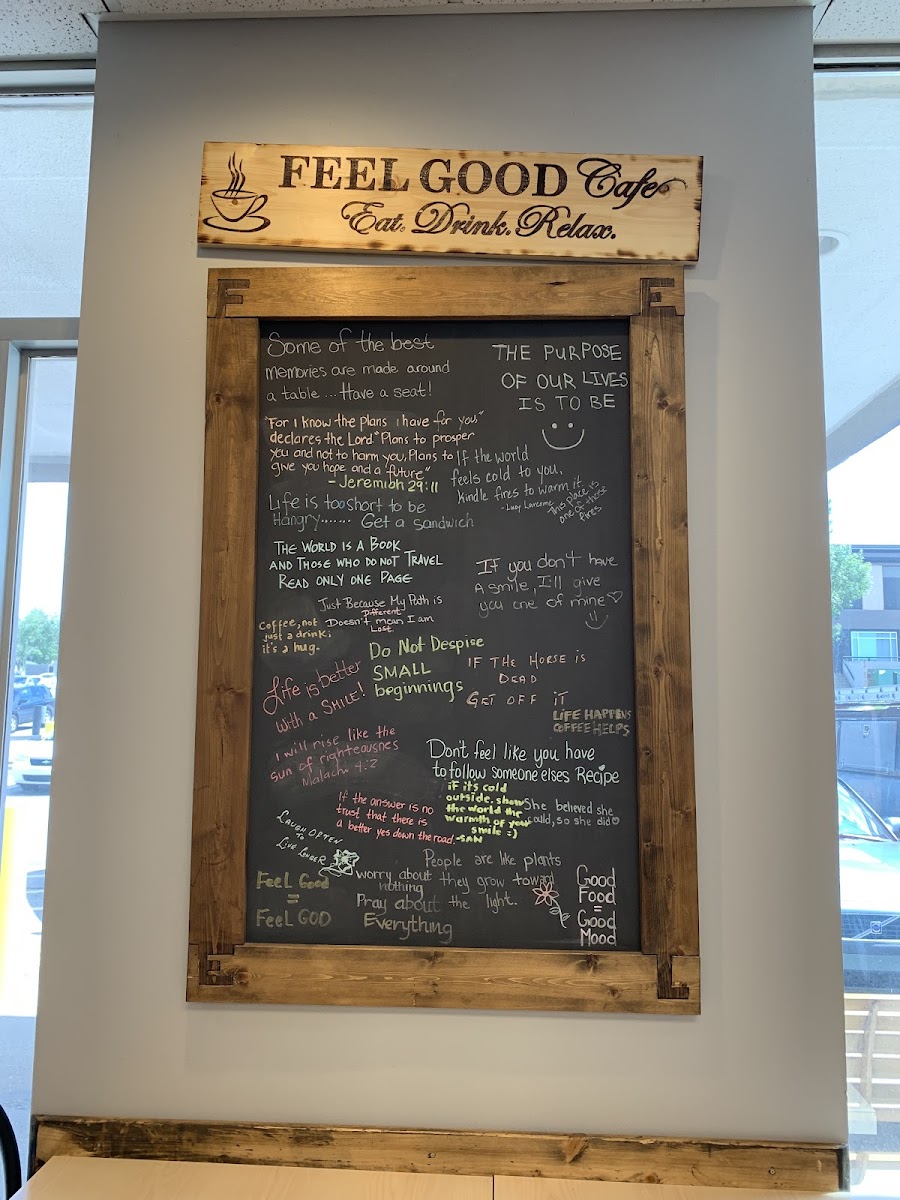 FEEL GOOD Cafe
Eat. Drink. Relax.
F
E
Some of the best
memories are made around
a table ... Have a seat!
THE PURPOSE
OF OUR LIVES
IS TO BE
"For I know the plans i have for you"
declares the Lord "Plans to prosper
you and not to harm you, Plans to
give you hope and a future"
- Jeremiah 29:11
If the world
feels cold to you,
kindle fires to warm it.
- Lucy Larcom
This place is
one of those
fires
Life is too short to be
Hangry....... Get a sandwich
THE WORLD IS A BOOK
AND THOSE WHO DO NOT TRAVEL
READ ONLY ONE PAGE
If you don't have
A smile, I'll give
you one of mine
Just Because My Path is
Different
Doesn't mean I am
Lost.
Coffee, not
just a drink;
it's a hug.
Do Not Despise
SMALL
beginnings
IF THE HORSE IS
DEAD
GET OFF IT
Life is better
with a SMILE!
LIFE HAPPENS
COFFEE HELPS
I will rise like the
sun of righteousnes
Malachi 4:2
Don't feel like you have
to follow someone elses Recipe
If the answer is no
trust that there is
a better yes down the road.
iF it's cold
outside. show
the world the
warmth of your
smile =)
-SAN
She believed she
could, so she did
LAUGH OFTEN
TO
LIVE LONGER
People are like plants
they grow toward
the light.
worry about
nothing
Pray about
Everything
Feel Good
=
Feel GOD
Good
Food
=
Good
Mood
E
L